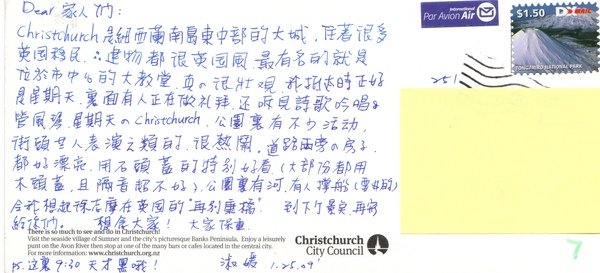 Dear 家人們：
Christchurch是紐西蘭南島東中部的大城，住著很多
英國移民，建物都很英國風，最有名的就是
位於市中心的大教堂，真の很壯觀，我抵達時正好
是星期天，裏面有人正在做礼拜，还听見詩歌吟唱&
管風琴，星期天の Christchurch，公園裏有不少活動，
街頭艺人表演之類的，很熱鬧，道路兩旁の房子
都好漂亮，用石頭蓋的特别好看（大部份都用
木頭蓋，且隔音超不好），公園裏有河，有人撐船（要$的）
令我想起徐志摩在英國的"再别康橋"，到下个景点，再寫
給你們。 想念大家！ 大家保重
There is so much to see and do in Christchurch!
Visit the seaside village of Sumner and the city's picturesque Banks Peninsula. Enjoy a leisurely
punt on the Avon River then stop at one of the many bars or cafes located in the central city.
For more information: www.christchurch.org.nz
P.S. 这裏 9:30 天才黑哦！
淑嬌 1.25.09
Christchurch
City Council
International
Par Avion Air
$1.50
DX MAIL
TONGARIRO NATIONAL PARK
251
7